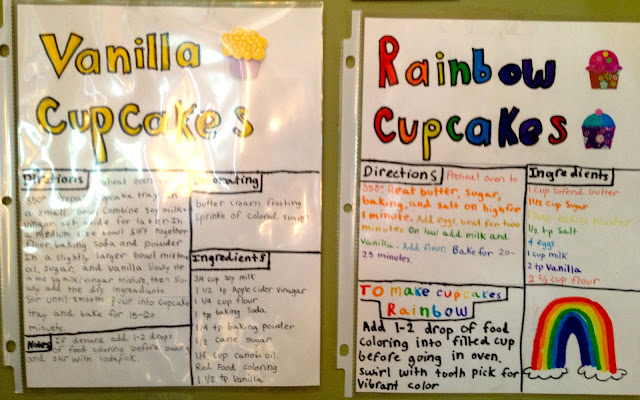 Vanilla
Cupcakes
Directions Preheat oven to
350° Prepare cupcake tray. In
a small bowl combine soy milk
vinegar set aside for later. In
a medium size bowl sift together
flour, baking soda and powder
In a slightly larger bowl mixture
oil, sugar, and Vanilla slowly
soy milk/vinegar mixture, then slo-
wly add the dry ingredients
Stir until smooth pour into cupcake
tray and bake for 15-20
minuets.
Notes If desired add 1-2 drops
of food coloring before baking
and stir with toothpick.
Decorating
butter cream frosting
sprinkle of colored sugar
Ingredients
3/4 cup soy milk
1 1/2 tp Apple Cider Vinegar
1 1/4 cup flour
1 tp baking Soda
1/4 tp baking powder
1/2 cane sugar
1/4 cup canola oil.
Red Food coloring
1 1/2 tp Vanilla
Rainbow
Cupcakes
Directions Preheat oven to
350° Beat butter, sugar,
baking, and salt on high for
1 minute. Add eggs, beat for two
minutes On low add milk and
Vanilla. Add flour. Bake for 20-
25 minutes.
Ingredients
1 cup softend butter
1 1/2 cup Sugar
baking powder
1/2 tp Salt
4 eggs
1 cup milk
2 tp Vanilla
2 3/4 cup flour
To make cupcakes
Rainbow
Add 1-2 drop of food
coloring into filled cup
before going in oven.
swirl with tooth pick for
Vibrant color